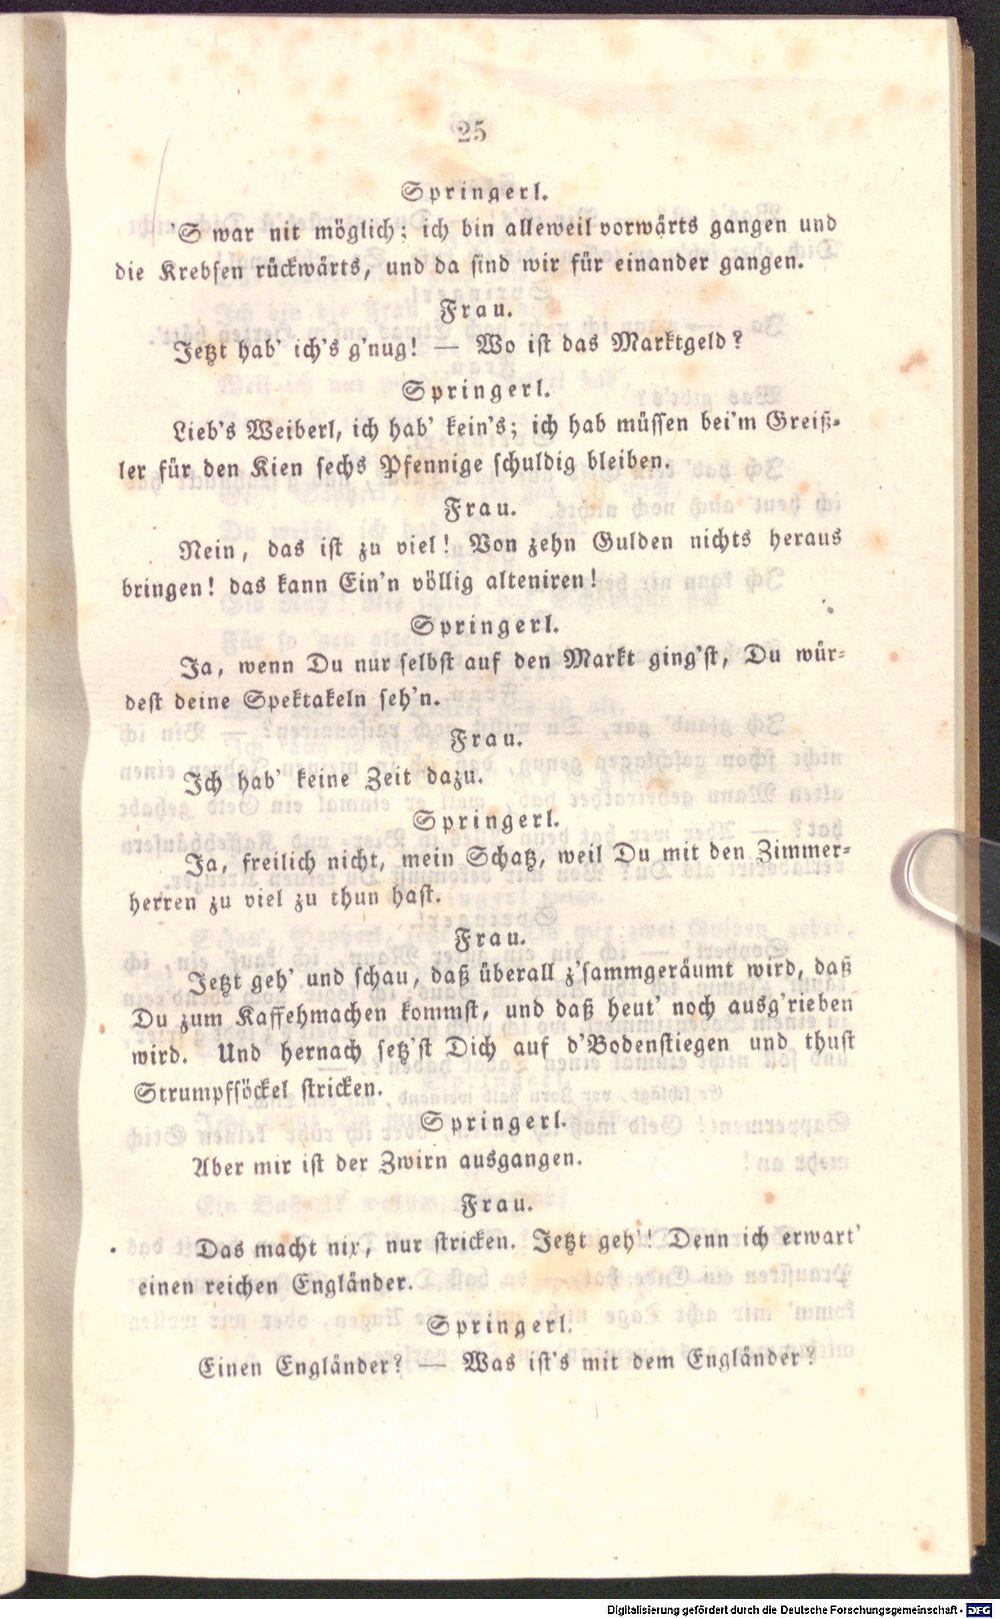 25
Springerl.
'S war nit möglich; ich bin alleweil vorwärts gangen und
die Krebsen rückwärts, und da sind wir für einander gangen.
Frau.
Jetzt hab' ich's g'nug! — Wo ist das Marktgeld?
Springerl.
Lieb's Weiberl, ich hab' kein's; ich hab müssen bei'm Greiß-
ler für den Kien sechs Pfennige schuldig bleiben.
Frau.
Nein, das ist zu viel! Von zehn Gulden nichts heraus
bringen! das kann Ein'n völlig alteniren!
Springerl.
Ja, wenn Du nur selbst auf den Markt ging'st, Du wür-
dest deine Spektakeln seh'n.
Frau.
Ich hab' keine Zeit dazu.
Springerl.
Ja, freilich nicht, mein Schatz, weil Du mit den Zimmer-
herren zu viel zu thun hast.
Frau.
Jetzt geh' und schau, daß überall z'sammgeräumt wird, daß
Du zum Kaffehmachen kommst, und daß heut' noch ausg'rieben
wird. Und hernach setz'st Dich auf d'Bodenstiegen und thust
Strumpfsöckel stricken.
Springerl.
Aber mir ist der Zwirn ausgangen.
Frau.
Das macht nix, nur stricken. Jetzt geh'! Denn ich erwart'
einen reichen Engländer.
Springerl.
Einen Engländer? — Was ist's mit dem Engländer?
Digitalisierung gefördert durch die Deutsche Forschungsgemeinschaft - DFG